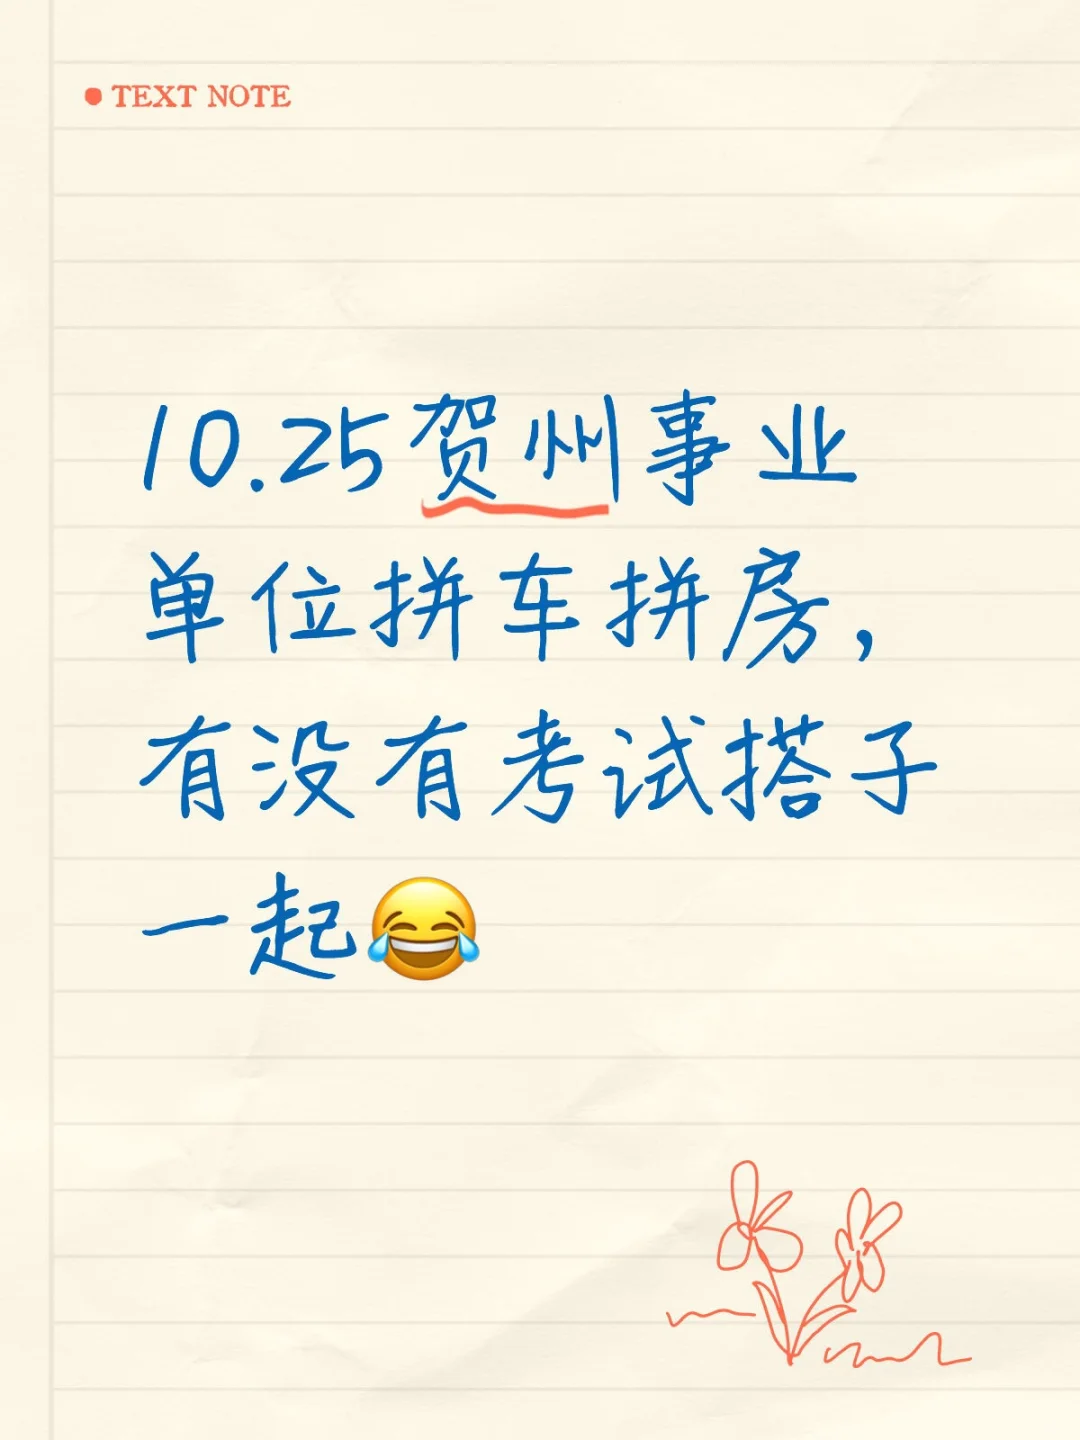 TEXT NOTE
10.25贺州事业
单位拼车拼房，
有没有考试搭子
一起😂